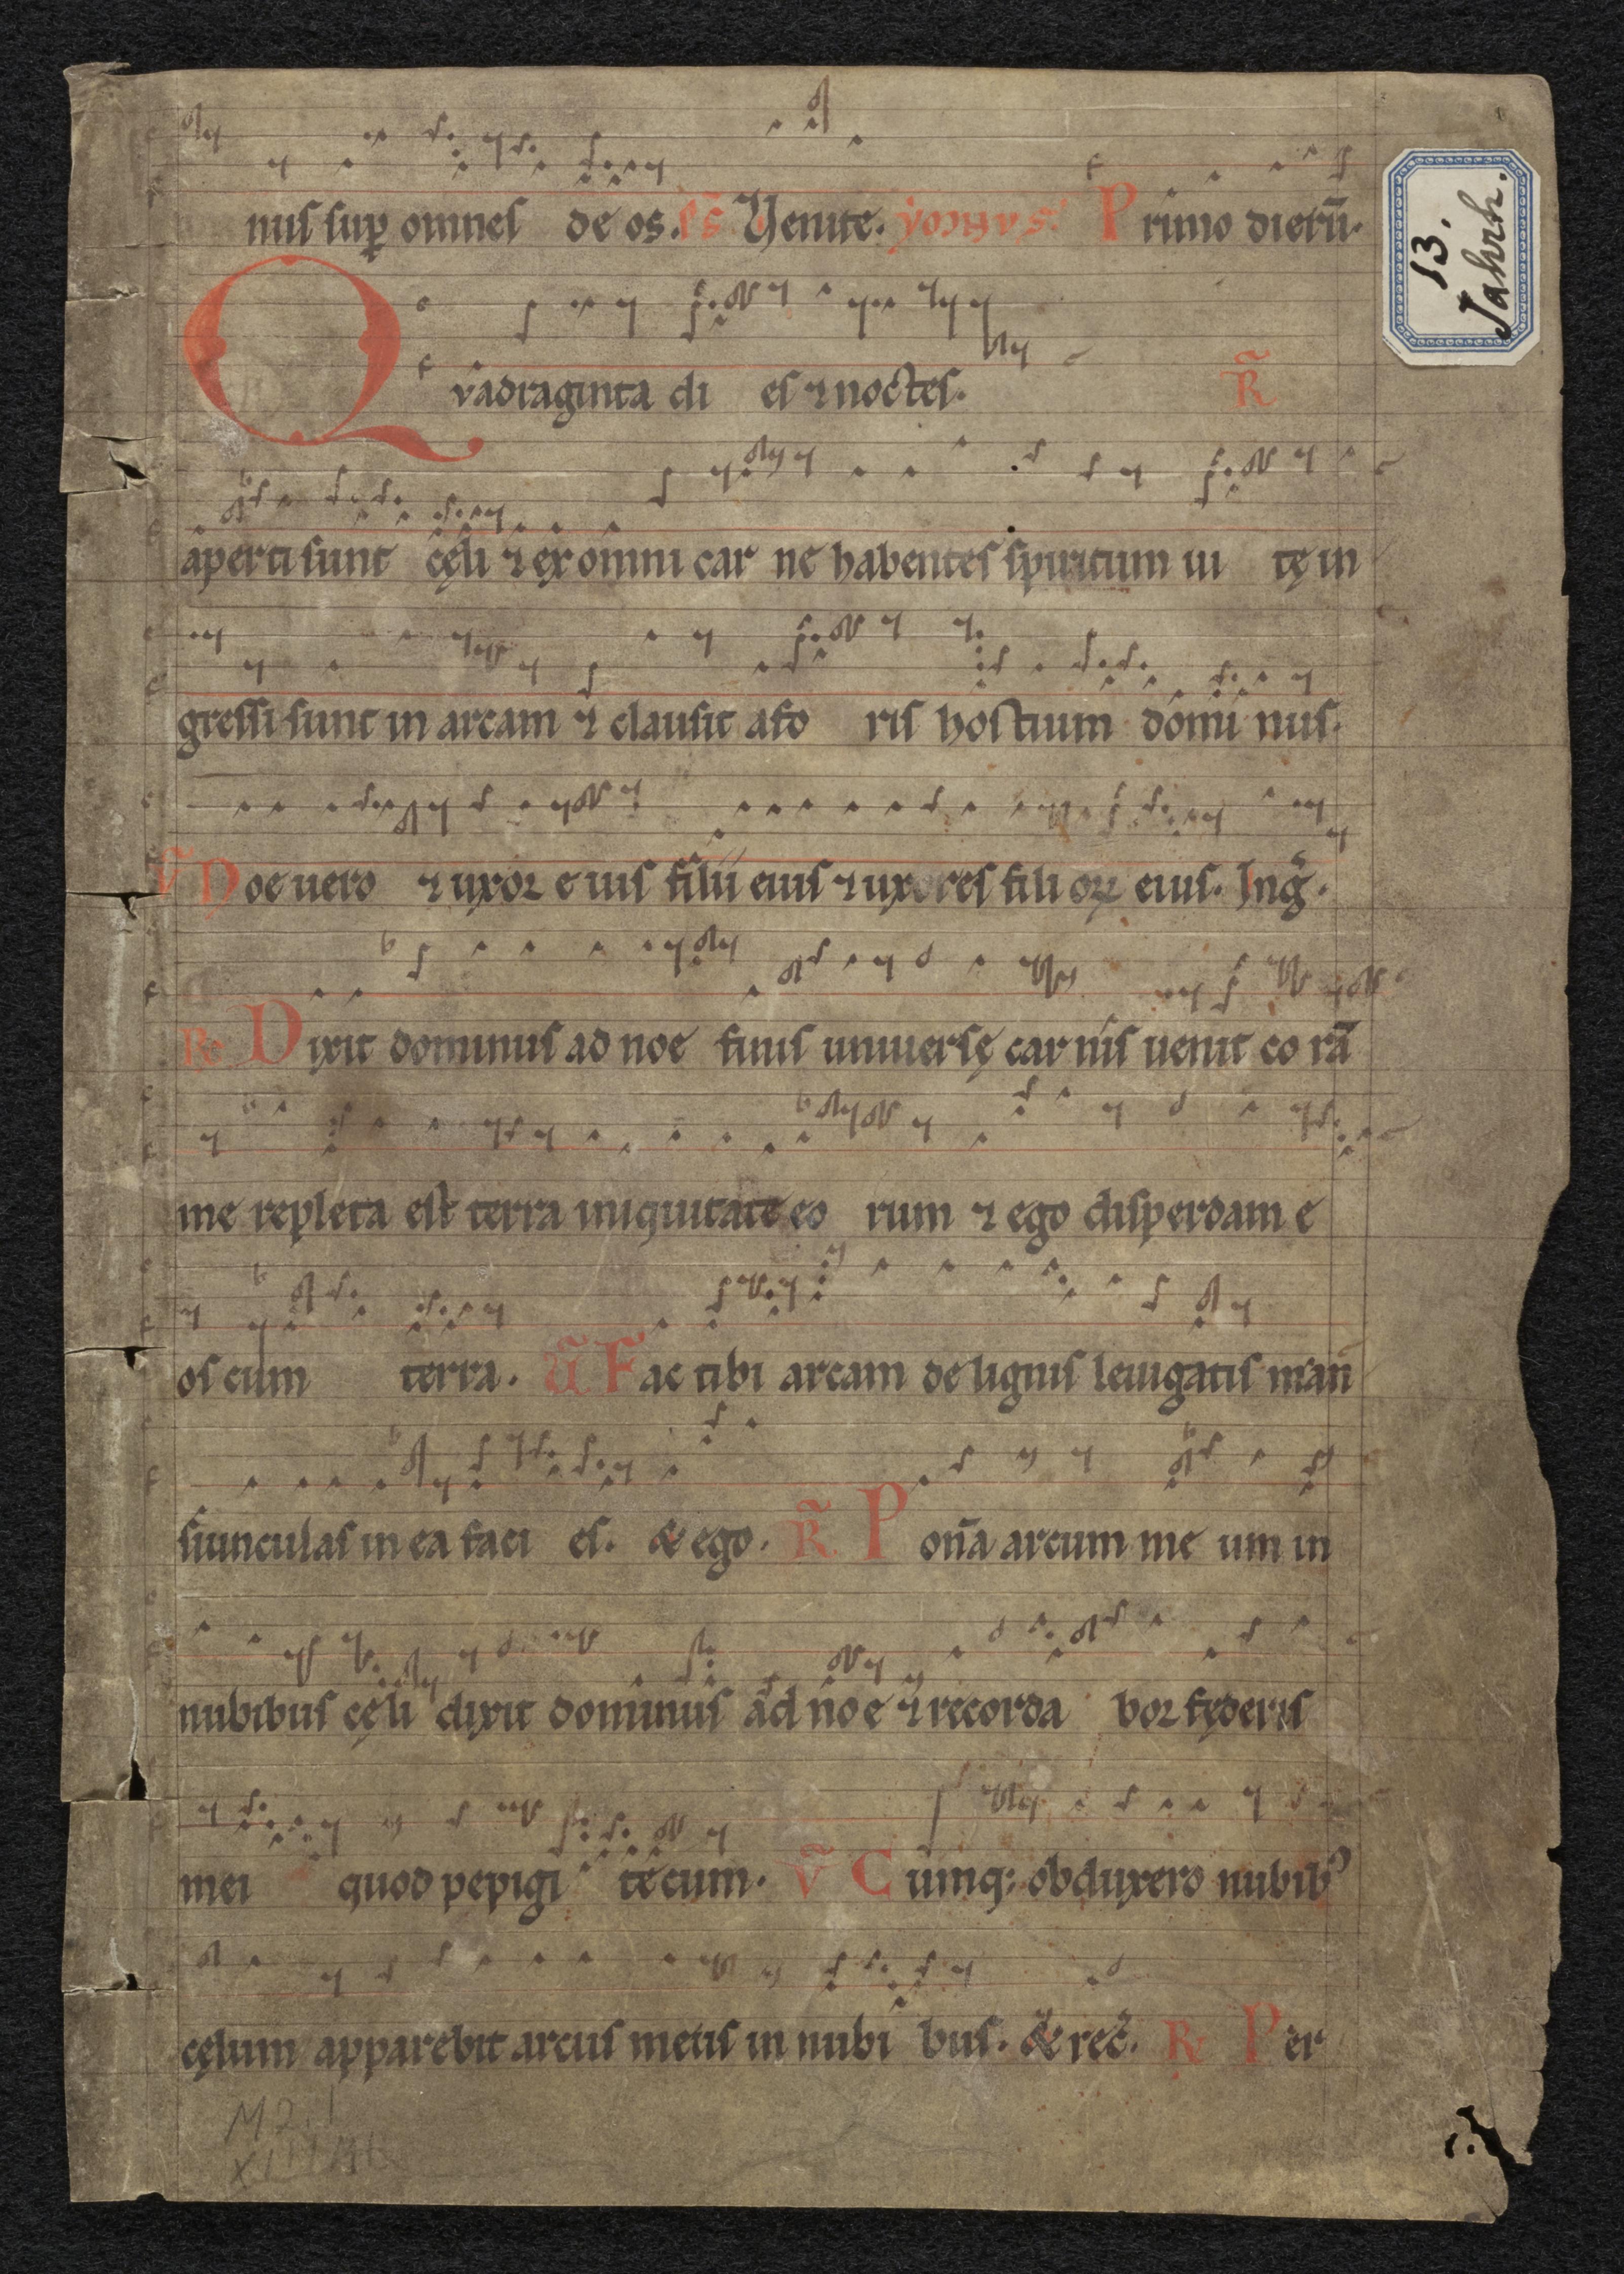 nus sup omnes de os. ps. Venite. ymnus. Primo dierū.
Qvadraginta di es ⁊ noctes. R̃
aperti sunt cęli ⁊ ex omni car ne habentes spiritum ui tę in
gressi sunt in arcam ⁊ clausit afo ris hostium domi nus.
V̄ Noe uero ⁊ uxor e ius filii eius ⁊ uxores fili oꝝ eius. Ing̃.
R̃ Dixit dominus ad noe finis uniuersę car nis uenit co rā
me repleta est terra iniquitate eo rum ⁊ ego disperdam e
os cum terra. V̄ Fac tibi arcam de lignis leuigatis man
siunculas in ea faci es. & ego. R̃ Ponā arcum me um in
nubibus cęli dixit dominus ad noe ⁊ recorda bor fęderis
mei quod pepigi tecum. V̄ Cumq; obduxero nubib⁹
cęlum apparebit arcus meus in nubi bus. & rec̃. R̃ Per
13.
Jahrh.
M2.1